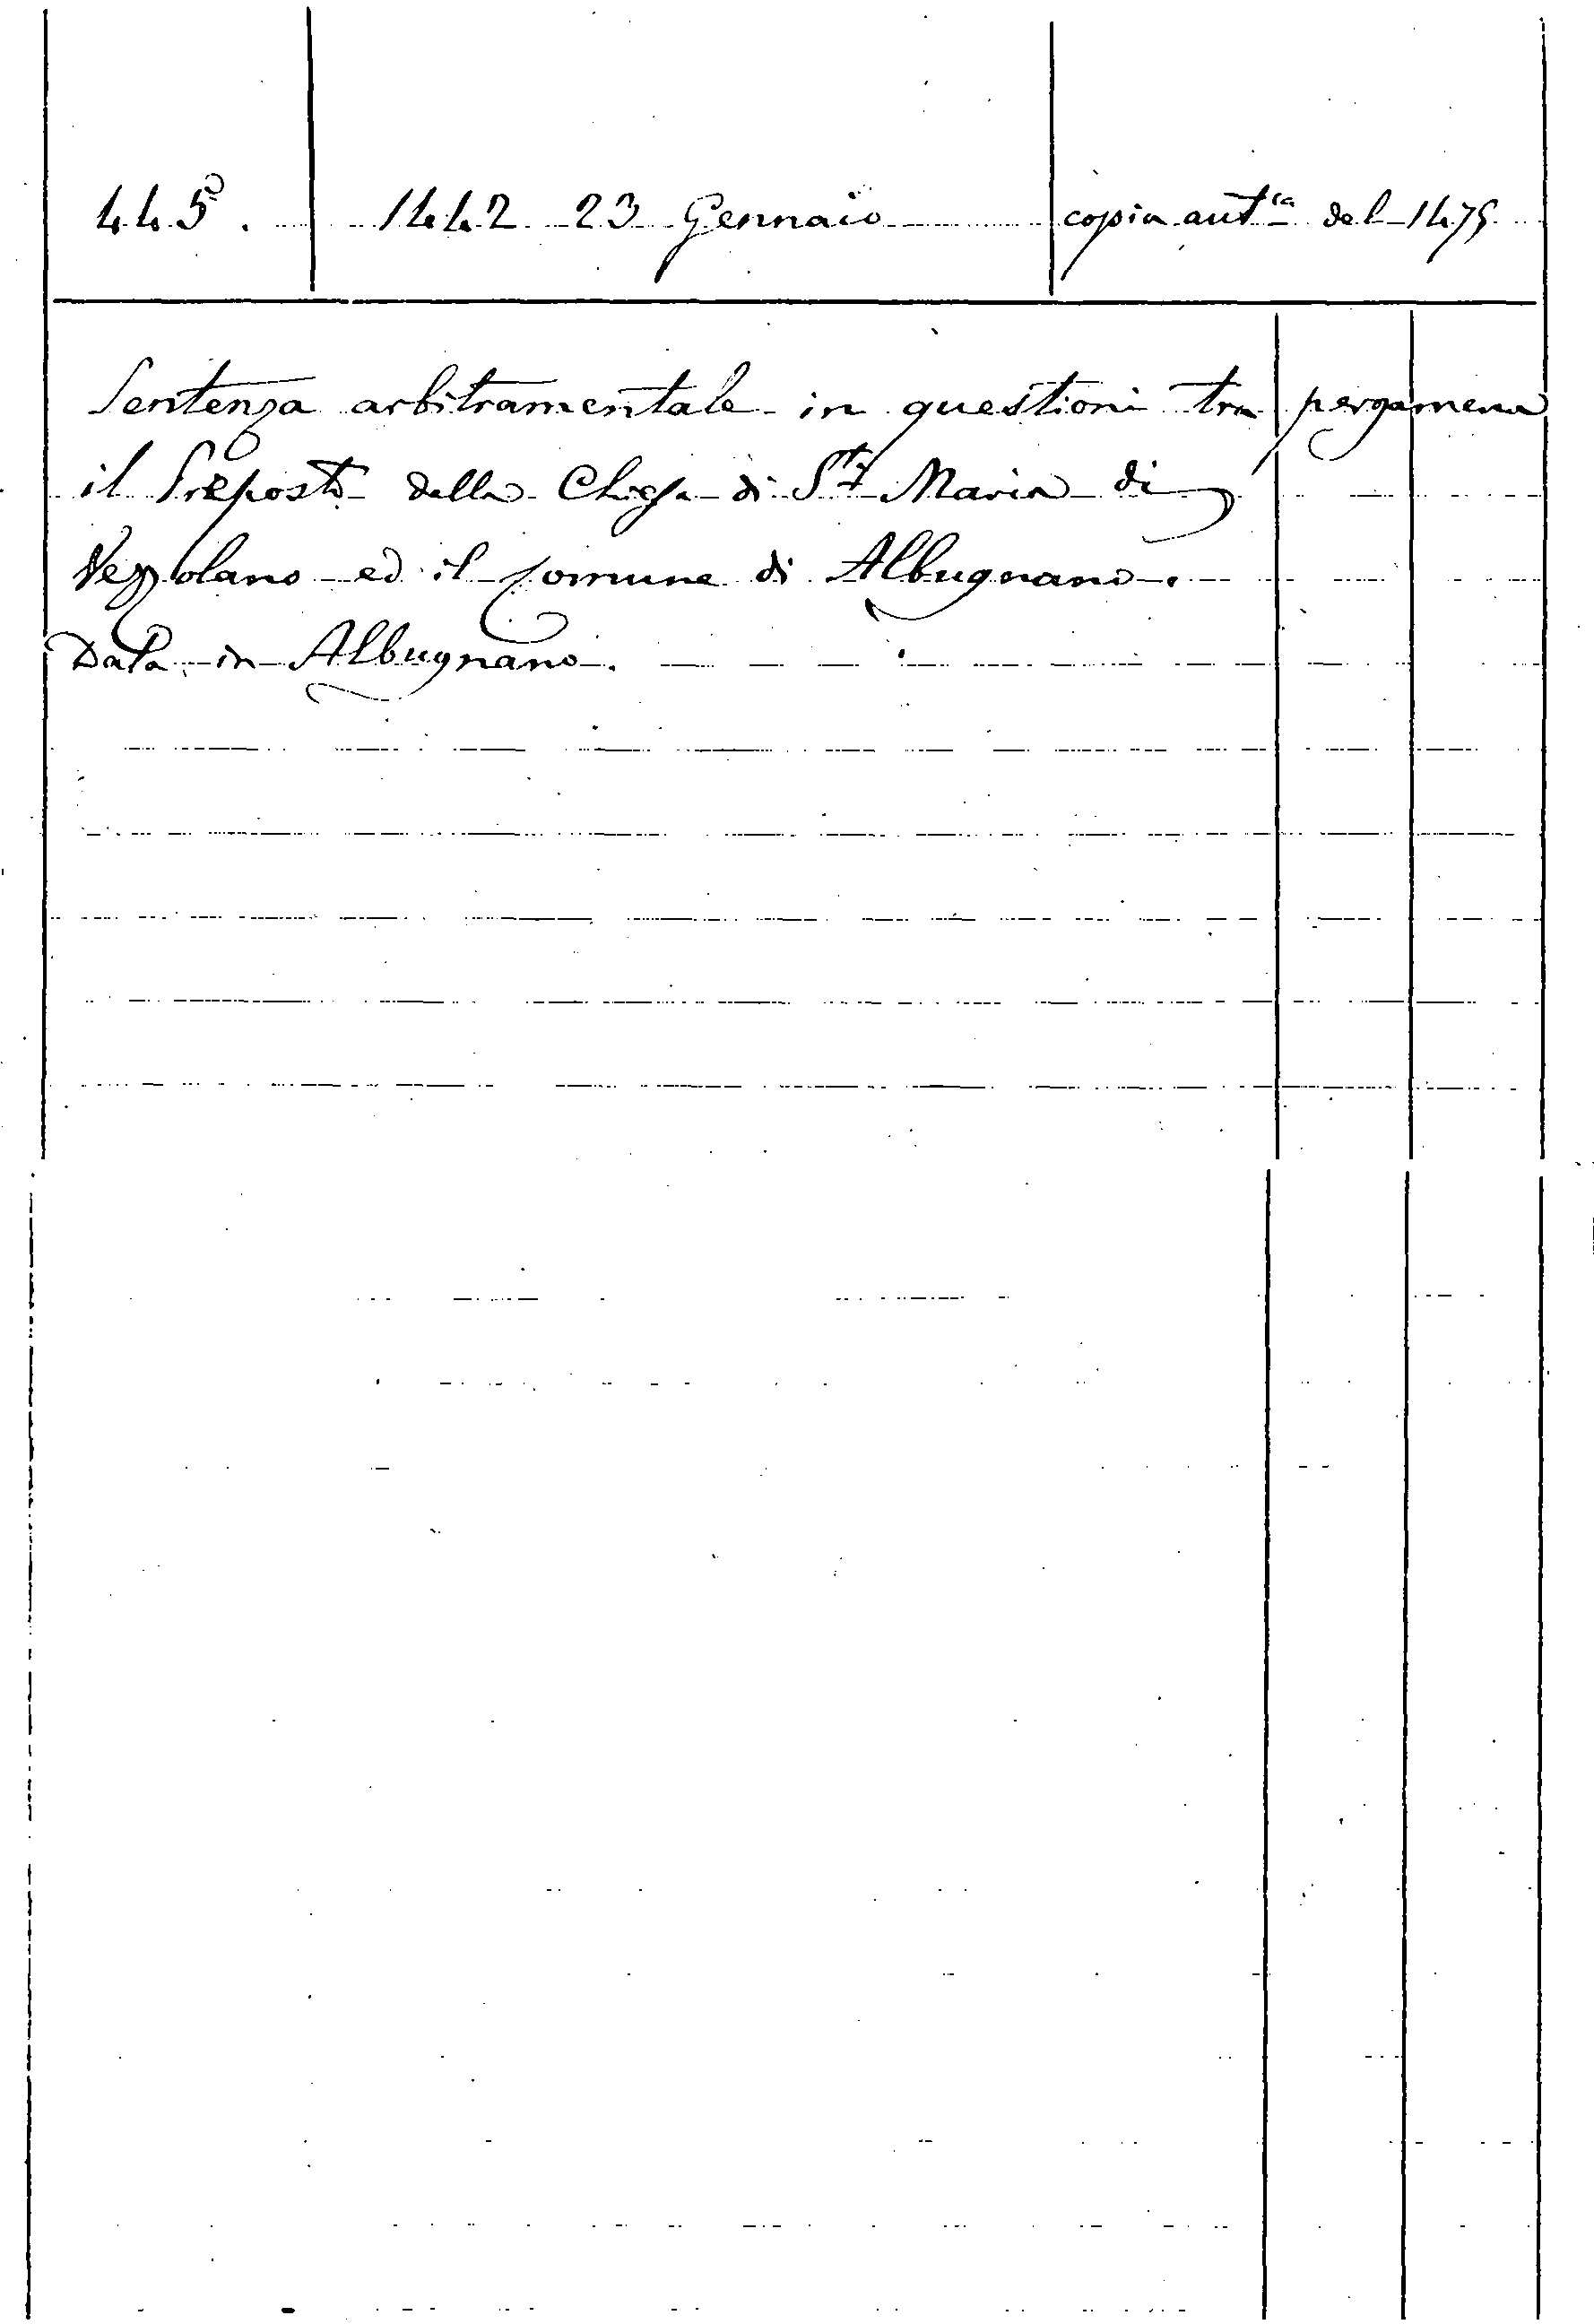 445. 1442 23 Gennaio copia aut.ca del 1475
Sentenza arbitramentale in questioni tra pergamena
il Preposto della Chiesa di Sta Maria di
Vezzolano ed il comune di Albugnano.
Data in Albugnano.